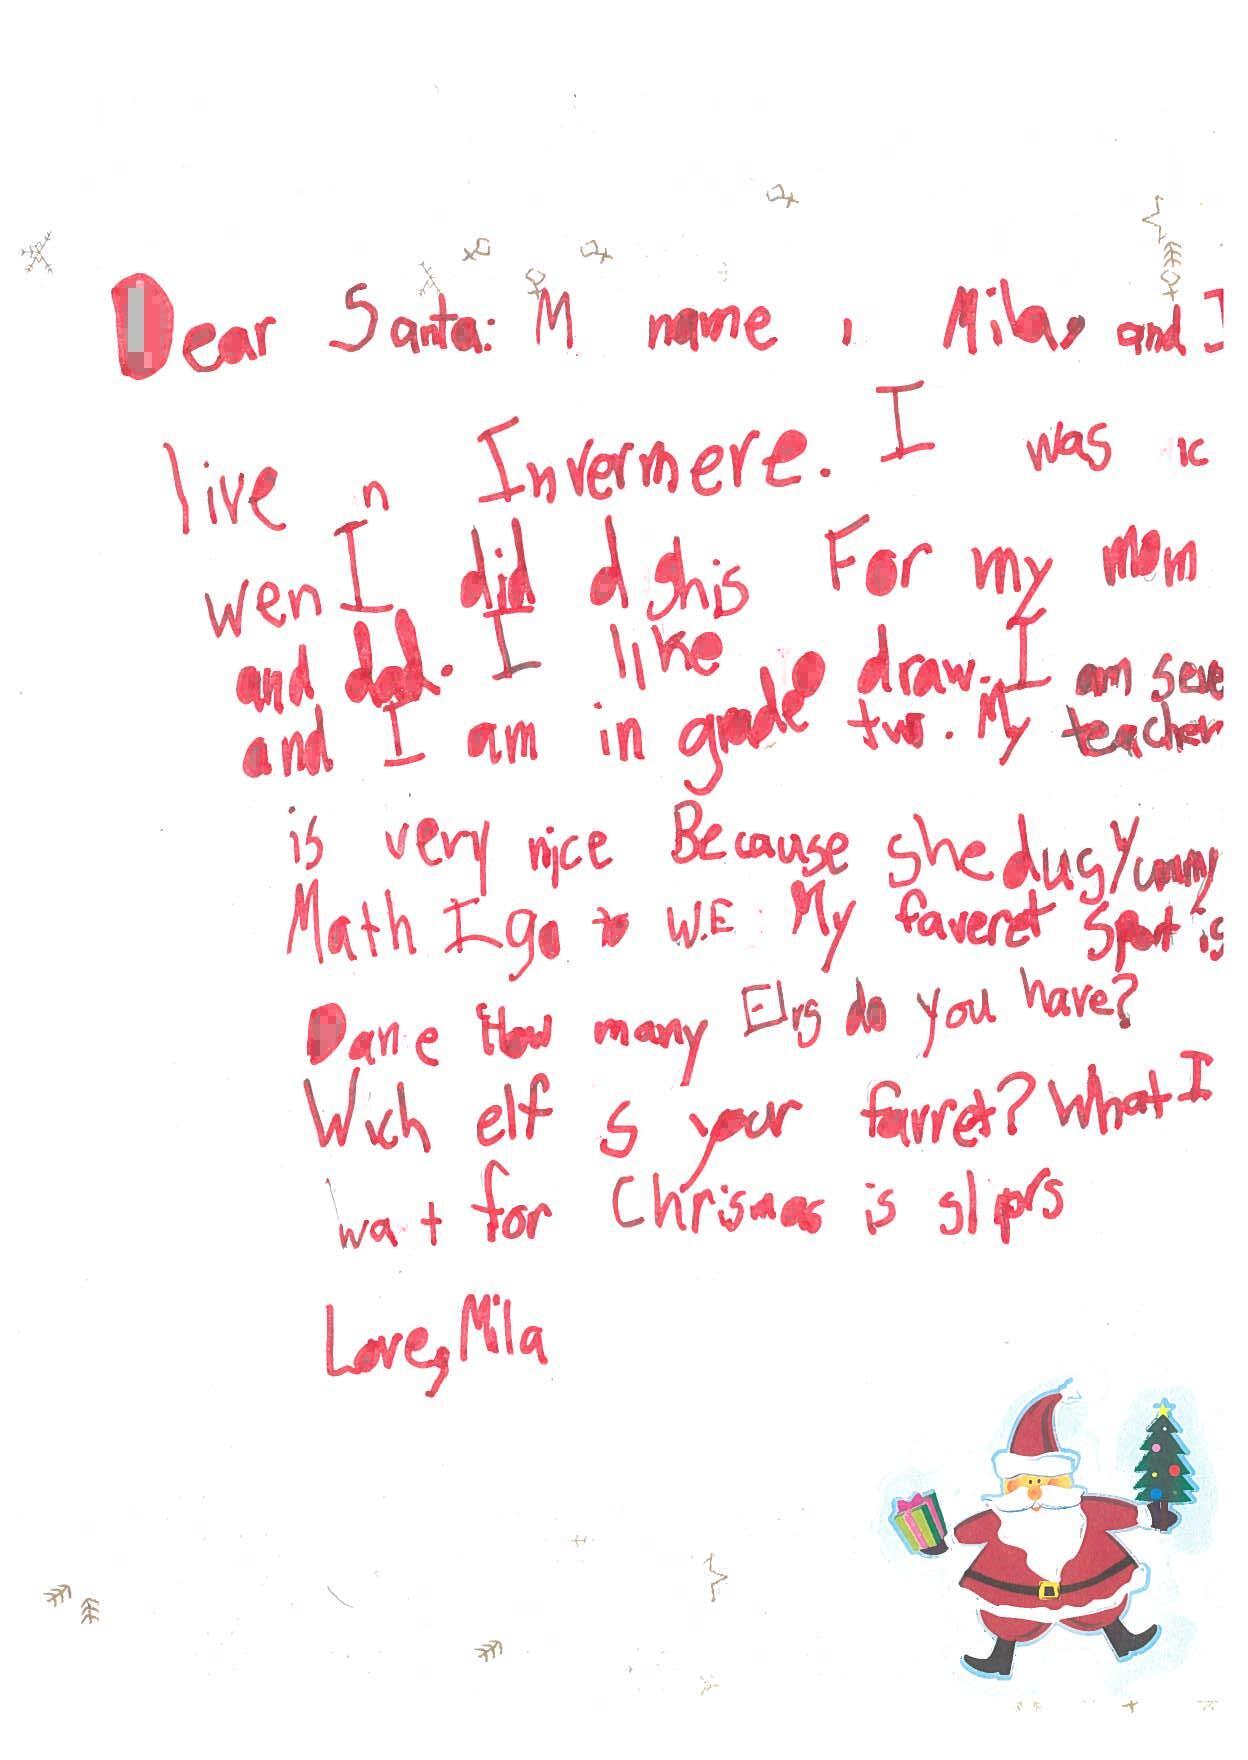 Dear Santa: M name i Mila, and I
live n Invermere. I was ic
wen I did dshis For my mom
and dad. I like draw. I am seve
and I am in grade two. My teacher
is very nice Because she dus Yummy
Math I go to W.E. My faveret Sport is
Dance How many Elvs do you have?
Wich elf s your favret? What I
wa t for Chrismas is sliprs
Love, Mila